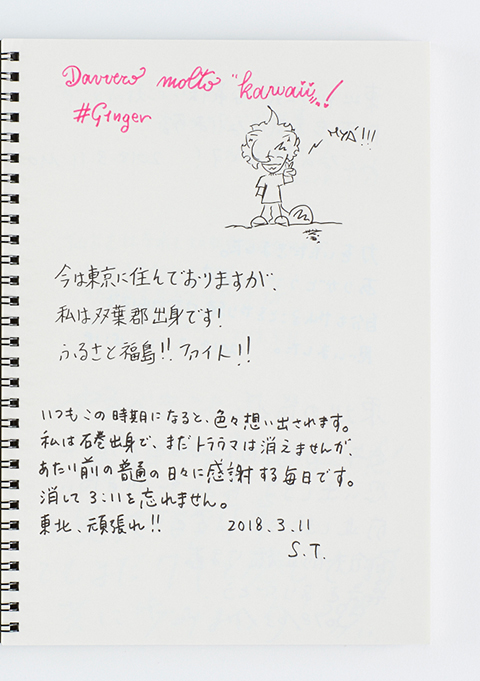 Davvero molto "kawaii"!
#Ginger
MYA'!!!
今は東京に住んでおりますが、
私は双葉郡出身です!
ふるさと福島!! ファイト!!
いつもこの時期になると、色々想い出されます。
私は石巻出身で、まだトララマは消えませんが、
あたり前の普通の日々に感謝する毎日です。
消して3.11を忘れません。
東北、頑張れ!! 2018.3.11
S.T.